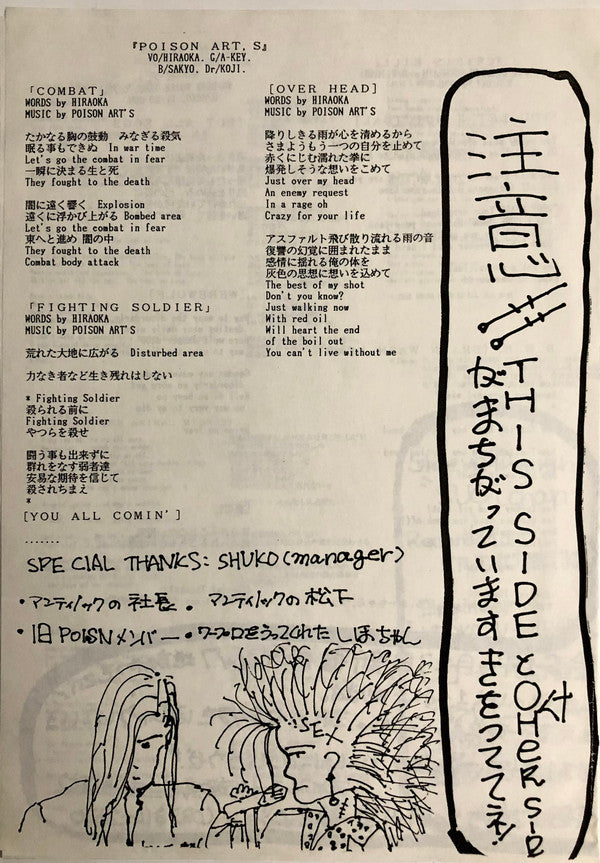 『POISON ART, S』
VO/HIRAOKA. G/A-KEY.
B/SAKYO. Dr/KOJI.
「COMBAT」
WORDS by HIRAOKA
MUSIC by POISON ART'S
たかなる胸の鼓動　みなぎる殺気
眠る事もできぬ　In war time
Let's go the combat in fear
一瞬に決まる生と死
They fought to the death
闇に遠く響く　Explosion
遠くに浮かび上がる Bombed area
Let's go the combat in fear
東へと進め 闇の中
They fought to the death
Combat body attack
「FIGHTING SOLDIER」
WORDS by HIRAOKA
MUSIC by POISON ART'S
荒れた大地に広がる　Disturbed area
力なき者など生き残れはしない
* Fighting Soldier
殺られる前に
Fighting Soldier
やつらを殺せ
闘う事も出来ずに
群れをなす弱者達
安易な期待を信じて
殺されちまえ
*
[YOU ALL COMIN']
.......
[OVER HEAD]
WORDS by HIRAOKA
MUSIC by POISON ART'S
降りしきる雨が心を清めるから
さまようもう一つの自分を止めて
赤くにじむ濡れた拳に
爆発しそうな想いをこめて
Just over my head
An enemy request
In a rage oh
Crazy for your life
アスファルト飛び散り流れる雨の音
復讐の幻覚に囲まれたまま
感情に揺れる俺の体を
灰色の思想に想いを込めて
The best of my shot
Don't you know?
Just walking now
With red oil
Will heart the end
of the boil out
You can't live without me
SPECIAL THANKS: SHUKO (manager)
・アンティノックの社長. アンティノックの松下
・旧POISNメンバー ・ワープロをうってくれた しほちゃん
SEX
注意!!
THIS SIDE と OTHER SID
がまちがっていますきをつけてネ!